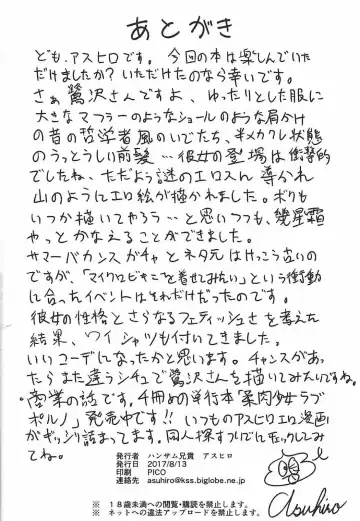 あとがき
ども、アスヒロです。今回の本は楽しんでいた
だけましたか？いただけたのなら幸いです。
さぁ鷺沢さんですよ、ゆったりとした服に
大きなマフラーのようなショールのような肩かけ
の昔の哲学者風のいでたち、半メカクレ状態
のうっとうしい前髪…彼女の登場は衝撃的
でしたね、ただよう謎のエロスに導かれ
山のようにエロ絵が描かれました。ボクも
いつか描いてやろう…と思いつつも、幾星霜
やっとかなえることができました。
サマーバカンスガチャとネタ元はけっこう古いの
ですが、「マイクロビキニを着せてみたい」という衝動
に合ったイベントはそれだけだったのです。
彼女の性格とさらなるフェティッシュさを考えた
結果、ワイシャツも付いてきました。
いいコーデになったかと思います。チャンスがあっ
たらまた違うシチュで鷺沢さんを描いてみたいですね。
商業の話です。4冊めの単行本「柔肉少女ラブ
ポルノ」発売中です!!いつものアスヒロエロ漫画
がギッシリ詰まってます。同人探すついでにチェックしてみ
てね。
発行者 ハンザム兄貴 アスヒロ
発行日 2017/8/13
印刷 PICO
連絡先 asuhiro@kss.biglobe.ne.jp
※ 18歳未満への閲覧・購読を禁止します。
※ ネットへの違法アップロードを禁止します。
Asuhiro